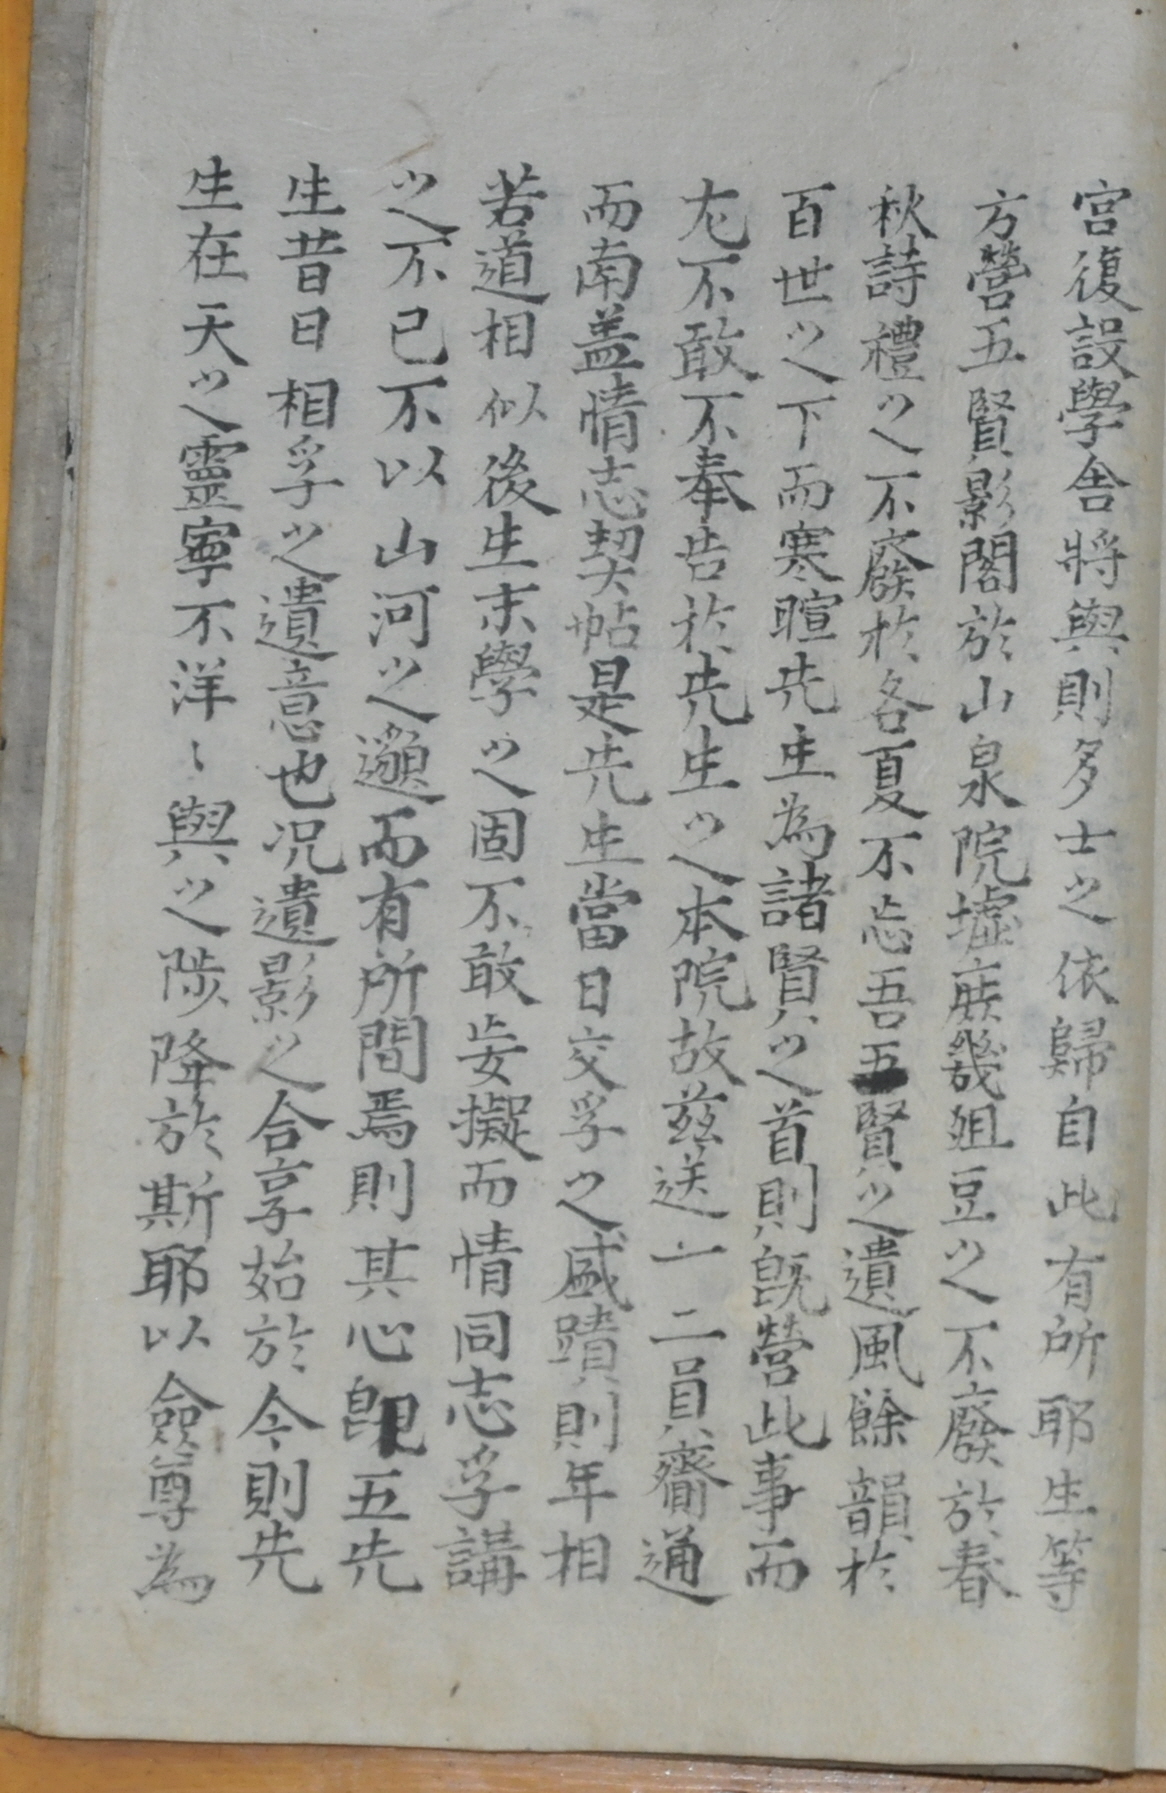 宮復設學舍將與則多士之依歸自此有所耶生等
方營五賢影閣於山泉院墟庶幾俎豆之不廢於春
秋詩禮之不廢於各夏不忘吾五賢之遺風餘韻於
百世之下而寒暄先生為諸賢之首則旣營此事而
尤不敢不奉告於先生之本院故玆送一二員齎通
而南盖情志契帖是先生當日交孚之盛蹟則年相
若道相似後生末學之固不敢妄擬而情同志孚講
之不已不以山河之邈而有所間焉則其心卽五先
生昔日相孚之遺意也况遺影之合享始於今則先
生在天之靈寧不洋〻與之陟降於斯耶以僉尊為